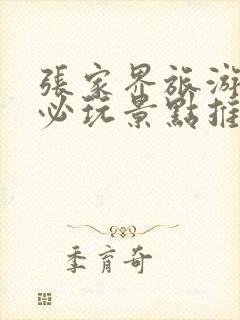 張家界旅游
必玩景點推
季育奇